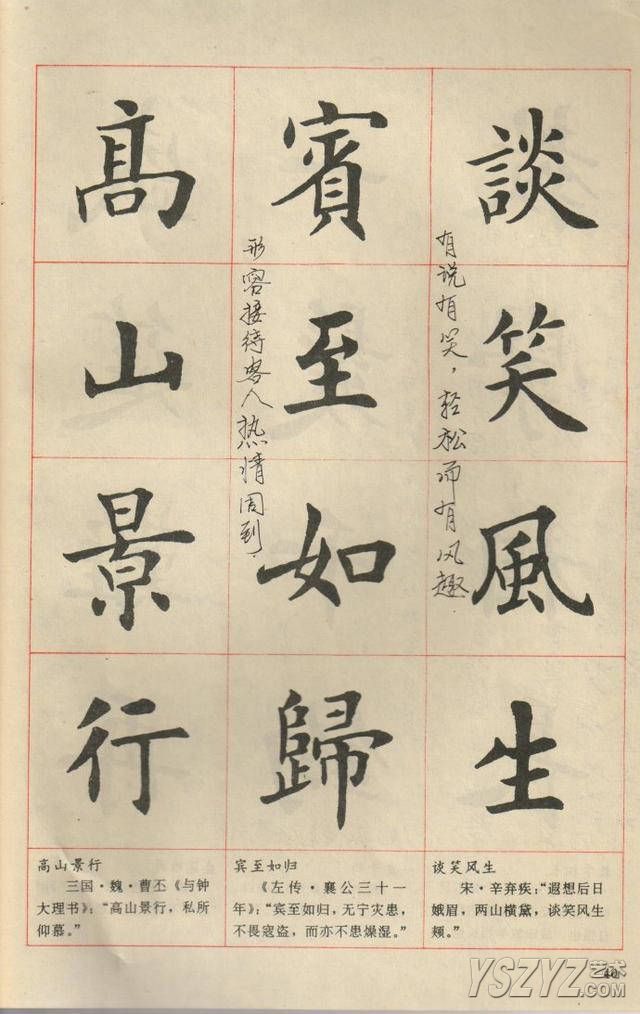 談笑風生
有说有笑，轻松而有风趣.
賓至如歸
形容接待客人热情周到.
高山景行
高山景行
三国·魏·曹丕《与钟
大理书》：“高山景行，私所
仰慕。”
宾至如归
《左传·襄公三十一
年》：“宾至如归，无宁灾患，
不畏寇盗，而亦不患燥湿。”
谈笑风生
宋·辛弃疾：“遐想后日
娥眉，两山横黛，谈笑风生
颊。”
40
YSZYZ艺术
.COM